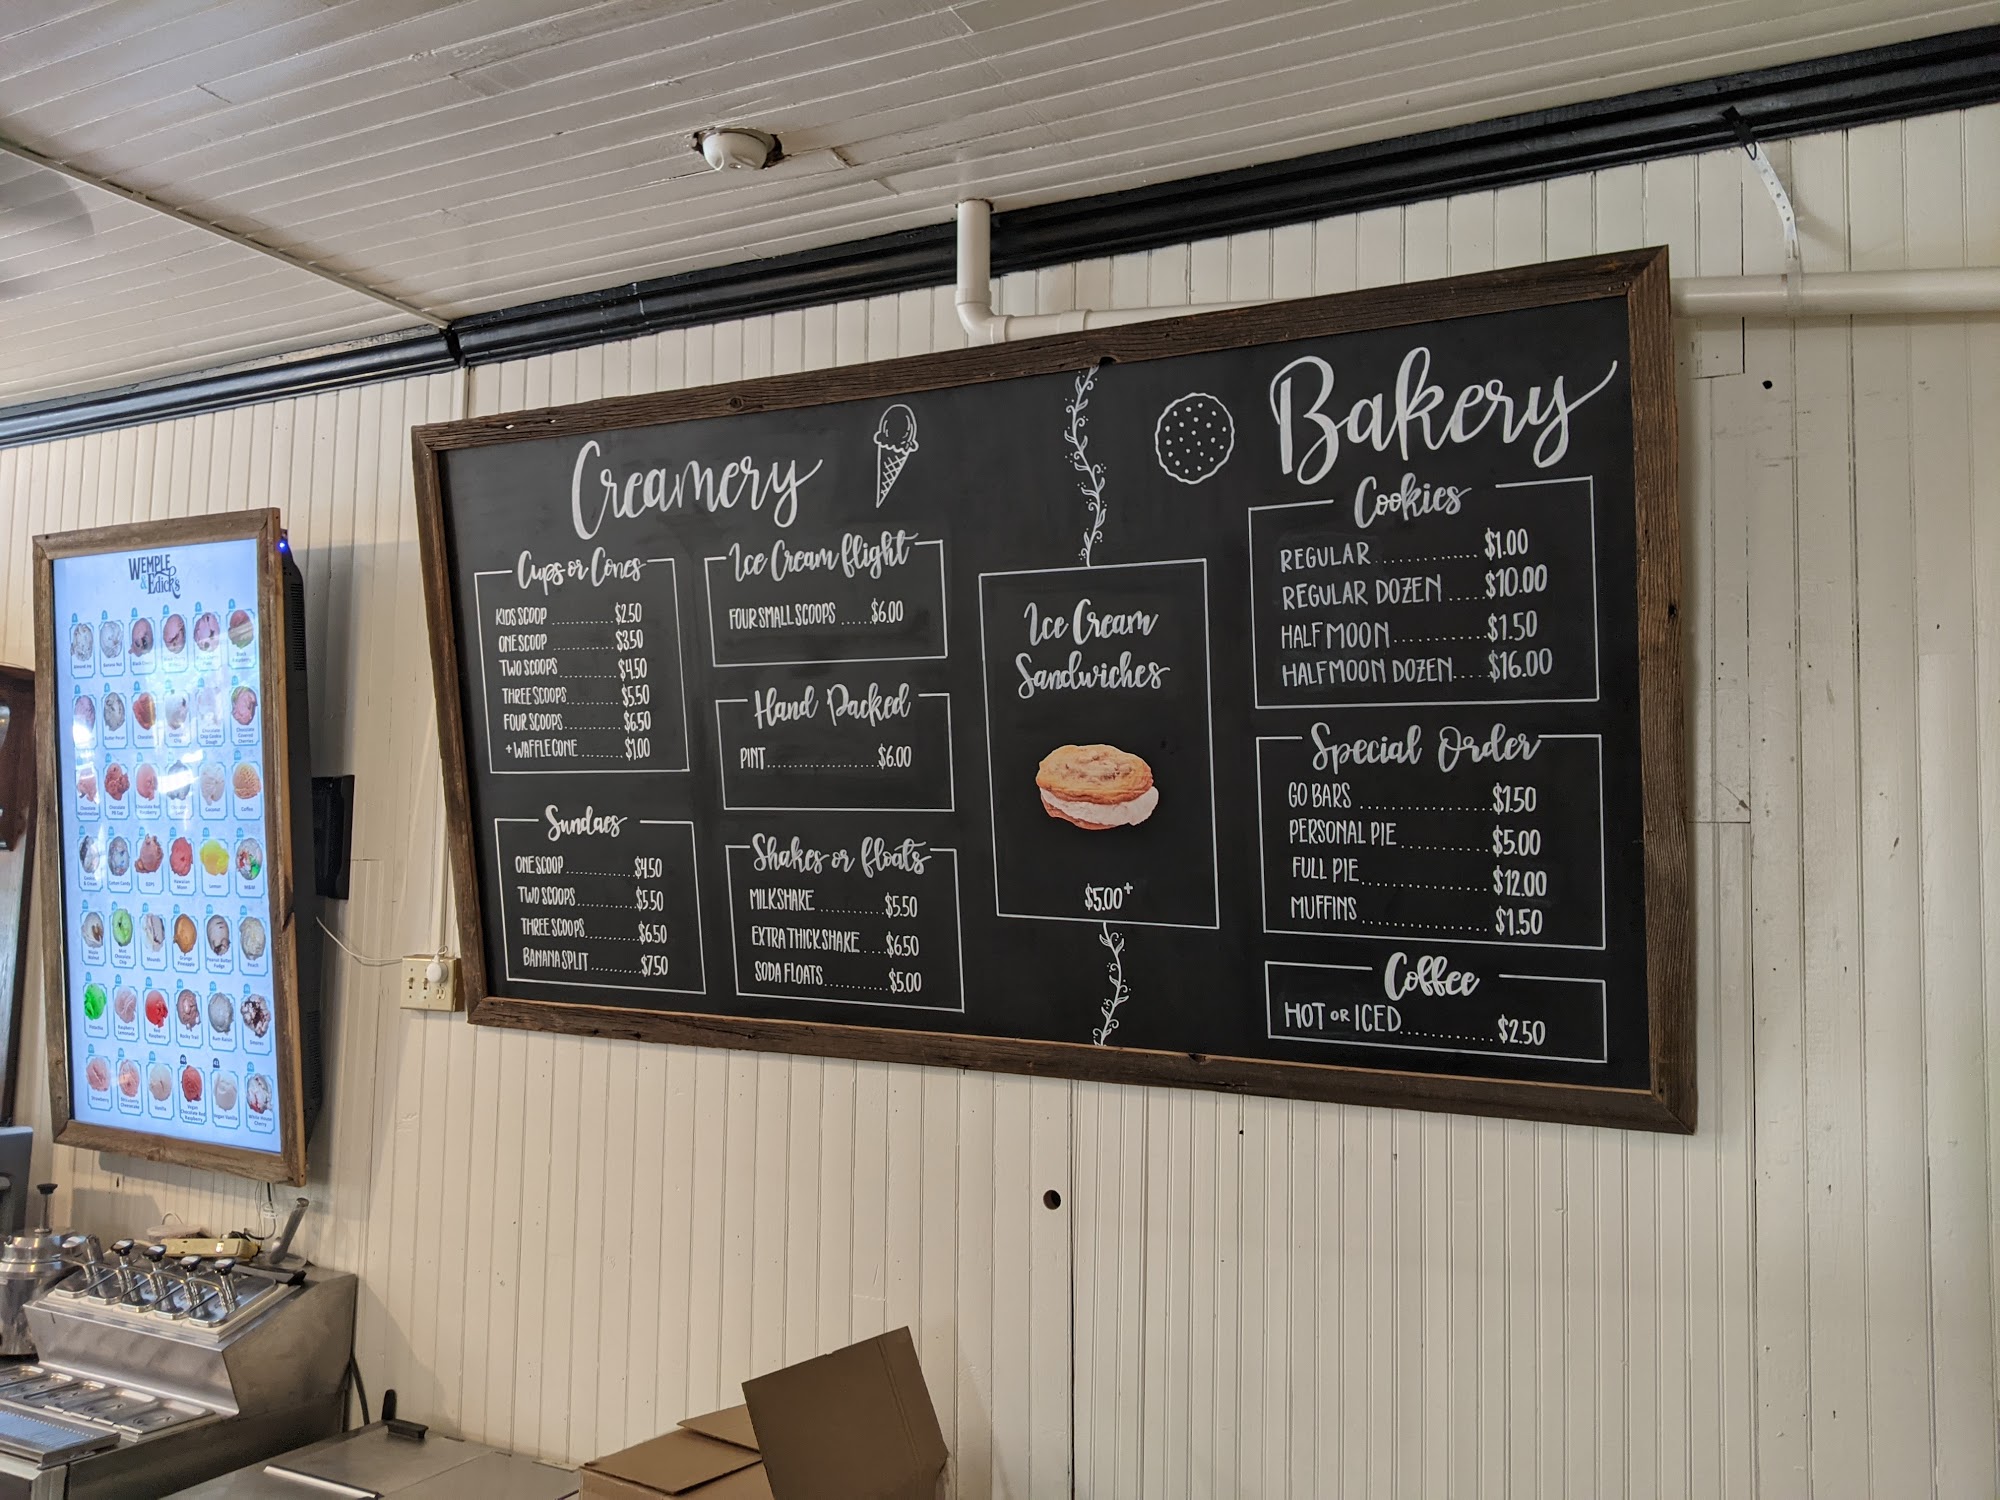 WEMPLE
& Edick's
Almond Joy
Banana Nut
Butter Pecan
Chocolate
Coconut
Coffee
Cotton Candy
Hawaiian Moon
Lemon
M&M
Maple Walnut
Mint Chocolate Chip
Mounds
Orange Pineapple
Peanut Butter Fudge
Peach
Pistachio
Raspberry Lemonade
Red Raspberry
Rocky Trail
Rum Raisin
Smores
Strawberry
Strawberry Cheesecake
Vanilla
Vegan Chocolate Red Raspberry
Vegan Vanilla
White House Cherry
Creamery
Cups or Cones
KIDS SCOOP ............. $2.50
ONE SCOOP ............. $3.50
TWO SCOOPS ............. $4.50
THREE SCOOPS ........... $5.50
FOUR SCOOPS ........... $6.50
+ WAFFLE CONE ........ $1.00
Sundaes
ONE SCOOP ............. $4.50
TWO SCOOPS ........... $5.50
THREE SCOOPS .......... $6.50
BANANA SPLIT ........... $7.50
Ice Cream flight
FOUR SMALL SCOOPS ...... $6.00
Hand Packed
PINT .................... $6.00
Shakes or floats
MILKSHAKE ............ $5.50
EXTRA THICK SHAKE .... $6.50
SODA FLOATS ............ $5.00
Ice Cream
Sandwiches
$5.00+
Bakery
Cookies
REGULAR ............ $1.00
REGULAR DOZEN ..... $10.00
HALF MOON ........... $1.50
HALF MOON DOZEN ..... $16.00
Special Order
GO BARS ................. $1.50
PERSONAL PIE ........... $5.00
FULL PIE ................ $12.00
MUFFINS ................. $1.50
Coffee
HOT OR ICED ............ $2.50